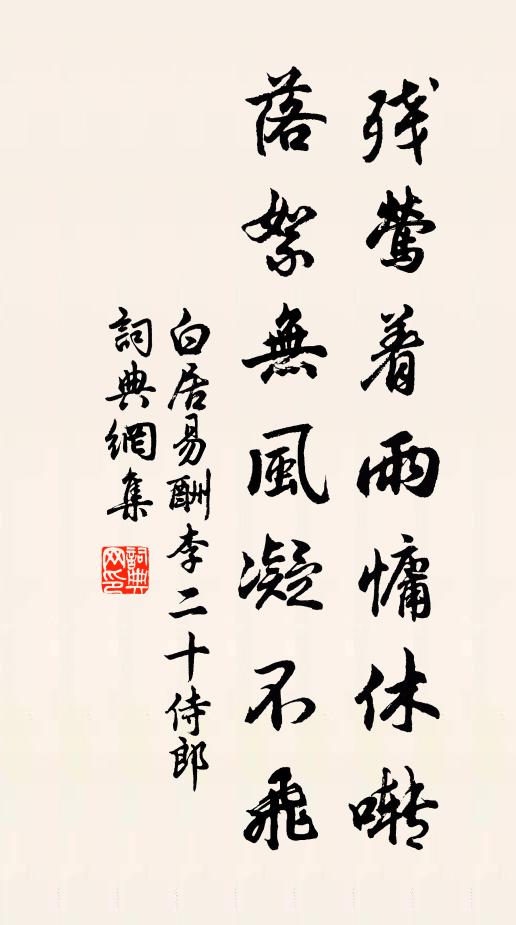 残鶯着雨慵休囀
落絮無風凝不飛
白居易酬李二十侍郎
詞典網集
詞典網印